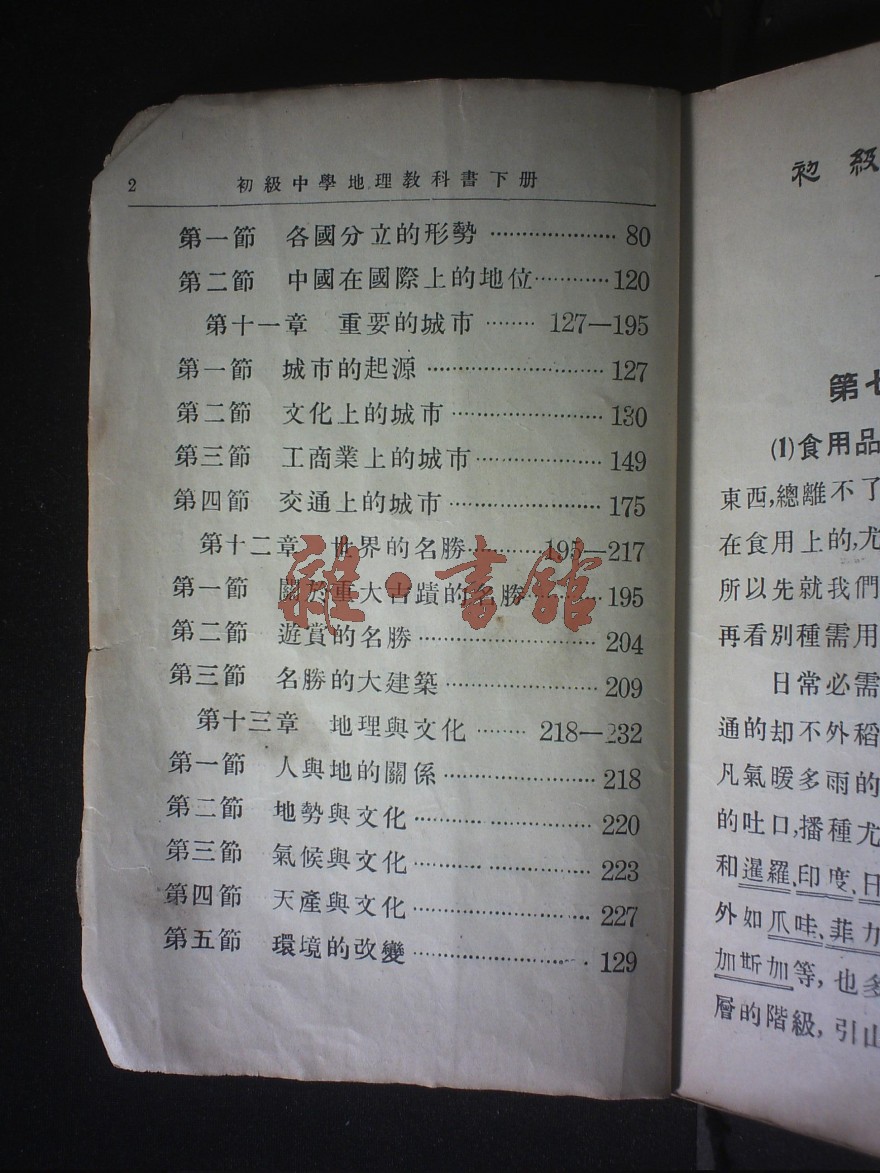 2 初級中學地理教科書下册
第一節 各國分立的形勢 ………………… 80
第二節 中國在國際上的地位………… 120
第十一章 重要的城市 ……… 127—195
第一節 城市的起源 ……………………… 127
第二節 文化上的城市 ………………… 130
第三節 工商業上的城市 ……………… 149
第四節 交通上的城市 ………………… 175
第十二章 世界的名勝………… 195—217
第一節 關於重大古蹟的名勝………… 195
第二節 遊賞的名勝 …………………… 204
第三節 名勝的大建築 ………………… 209
第十三章 地理與文化 ……… 218—232
第一節 人與地的關係 ………………… 218
第二節 地勢與文化 …………………… 220
第三節 氣候與文化 …………………… 223
第四節 天產與文化 …………………… 227
第五節 環境的改變 …………………… 129
雜·書舘
初級
第七
(1)食用品
東西,總離不了
在食用上的,尤
所以先就我們
再看別種需用
日常必需
通的却不外稻
凡氣暖多雨的
的吐口,播種尤
和暹羅、印度、日
外如爪哇、菲力
加斯加等,也多
層的階級,引山